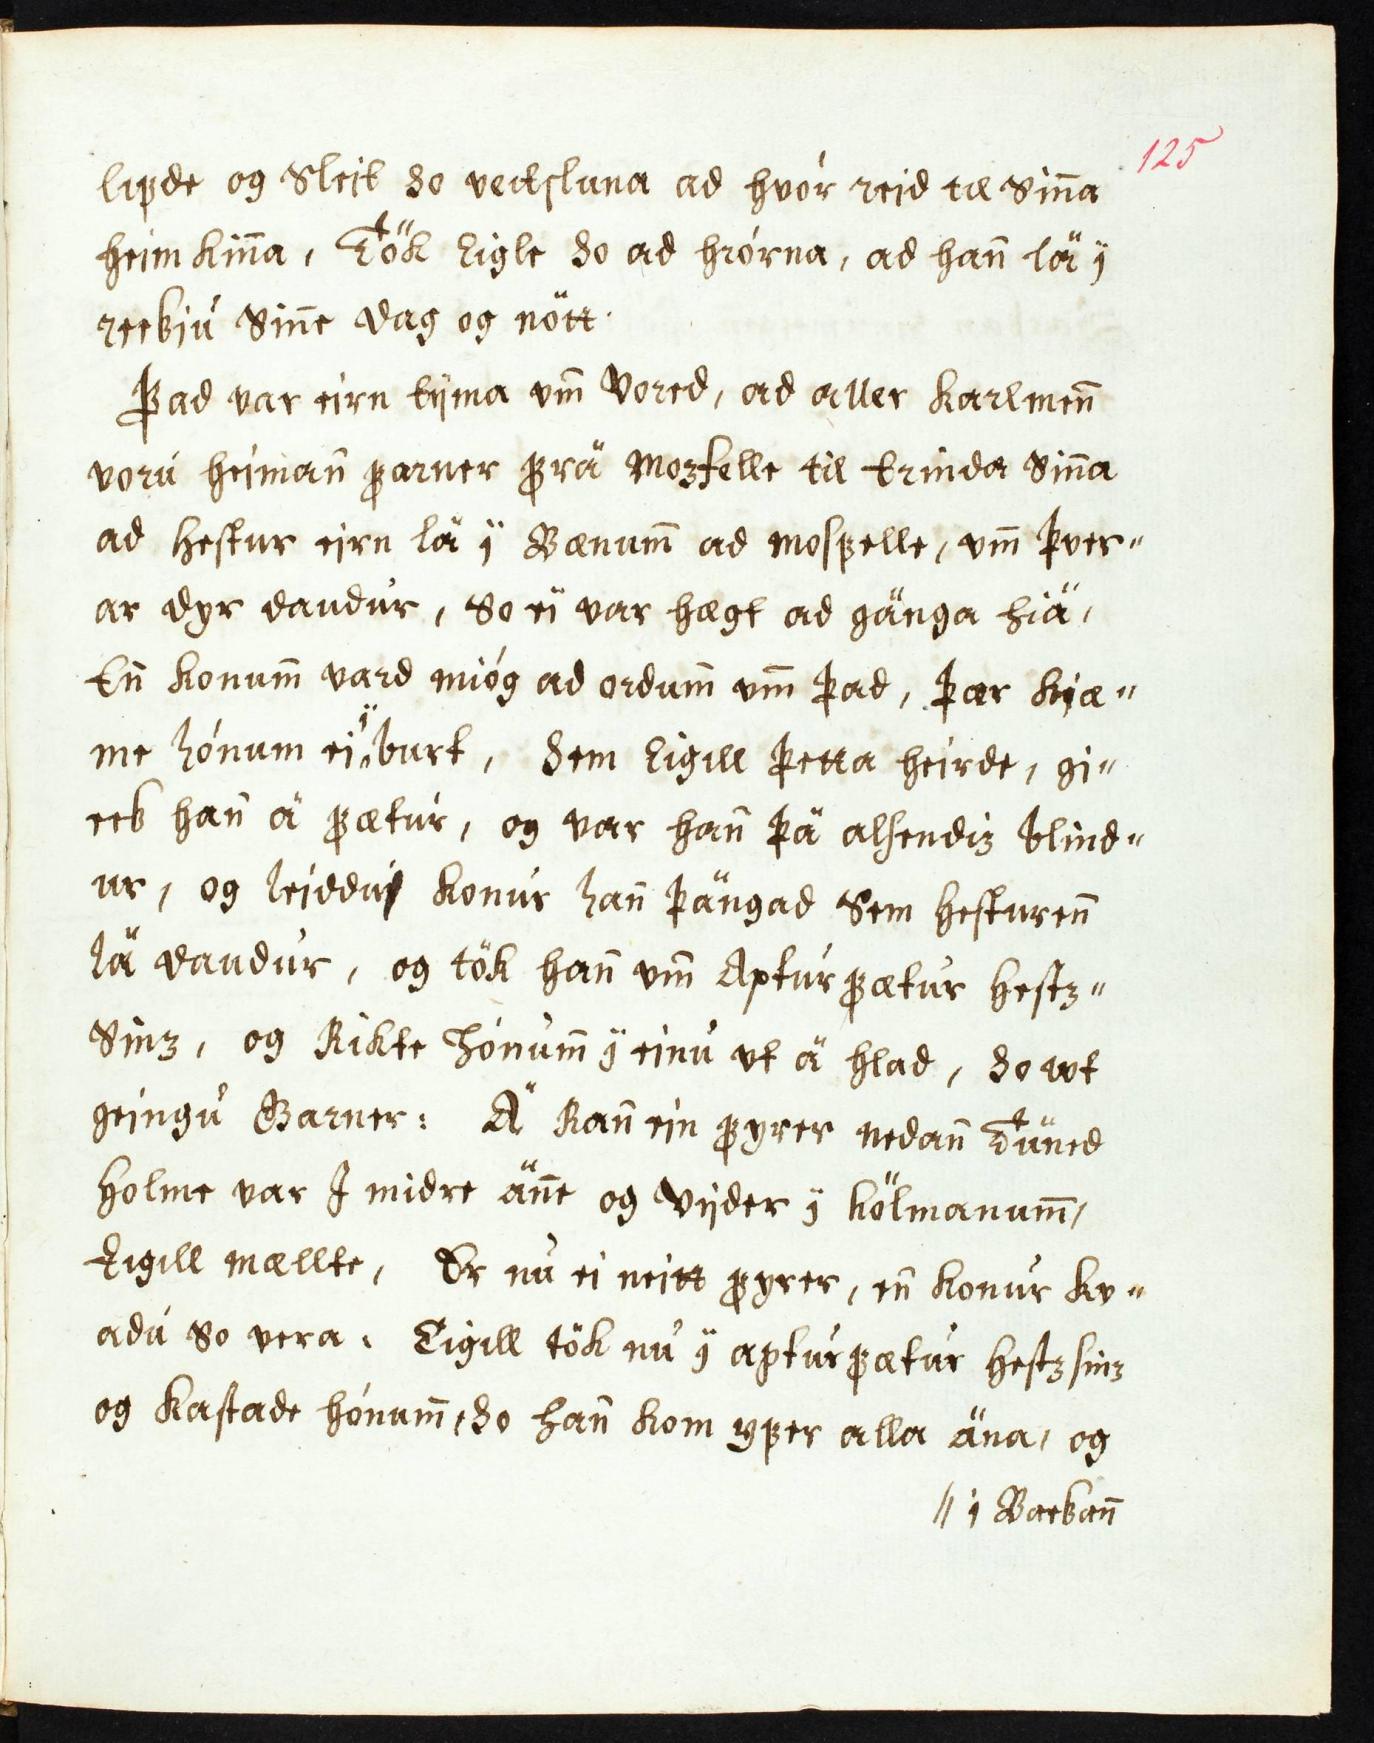 125
lifde og Sleit so veitsluna ad hvór reid til Sin̄a
heim kin̄a, Tök Eigle so ad hrórna, ad han̄ lä ÿ
reckiu Sin̄e dag og nött.
Þad var eirn tÿma um̄ Vored, ad aller karlmen̄
voru heiman̄ farner frä Mozfelle til Erinda Sin̄a
ad hestur eirn lä ÿ Bænum̄ ad mosfelle, um̄ þver„
ar dyr daudur, So ei var hægt ad gänga hiä,
En̄ konum̄ vard miög ad ordum̄ um̄ þad, þær kiæ„
me hónum ei ÿ burt, Sem Eigill þetta heirde, gi„
eck han̄ ä fætur, og var han̄ þä alsendiz blind„
ur, og leiddu konur han̄ þängad Sem hesturen̄
lä daudur, og tök han̄ um̄ Aptur fætur hestz„
Sinz, og Rikte hónum̄ ÿ einu ut ä hlad, so ut
geingu Garner: Ä Ran̄ ein fyrer nedan̄ Tüned
holme var I midre än̄e og Vÿder ÿ kölmanum̄,
Eigill mællte, Er nu ei neitt fyrer, en̄ konur kv„
adu So vera. Eigill tök nu ÿ apturfætur hestzsinz
og kastade hónum̄, so han̄ kom yfer alla äna, og
// i Backan̄